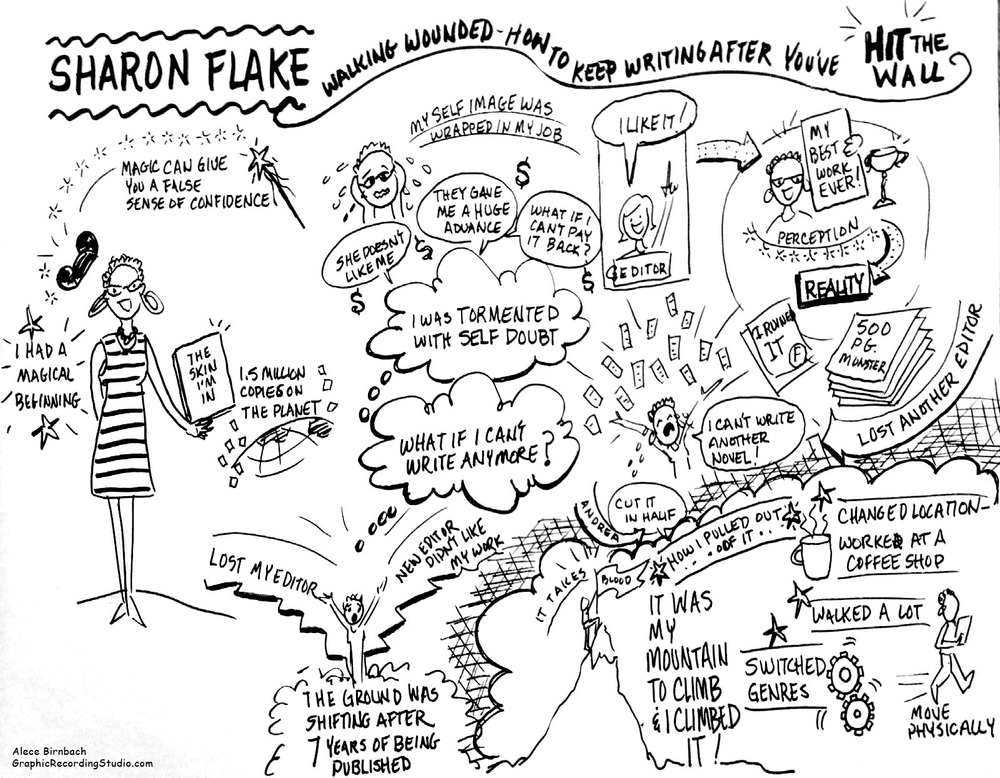 SHARON FLAKE
WALKING WOUNDED - HOW TO KEEP WRITING AFTER YOU'VE
HIT THE
WALL
MAGIC CAN GIVE
YOU A FALSE
SENSE OF CONFIDENCE
I HAD A
MAGICAL
BEGINNING
THE
SKIN
I'M
IN
1.5 MILLION
COPIES ON
THE PLANET
MY SELF IMAGE WAS
WRAPPED IN MY JOB
SHE DOESN'T
LIKE ME
THEY GAVE
ME A HUGE
ADVANCE
WHAT IF I
CAN'T PAY
IT BACK?
$
$
$
$
I WAS TORMENTED
WITH SELF DOUBT
WHAT IF I CAN'T
WRITE ANYMORE?
LOST MY EDITOR
NEW EDITOR
DIDN'T LIKE
MY WORK
THE GROUND WAS
SHIFTING AFTER
7 YEARS OF BEING
PUBLISHED
I LIKE IT!
EDITOR
MY
BEST
WORK
EVER!
PERCEPTION
REALITY
I RUINED
IT
F
500
PG.
MONSTER
LOST ANOTHER EDITOR
I CAN'T WRITE
ANOTHER
NOVEL!
ANDREA
CUT IT
IN HALF
IT TAKES
BLOOD
HOW I PULLED OUT
OF IT...
IT WAS
MY
MOUNTAIN
TO CLIMB
& I CLIMBED
IT!
CHANGED LOCATION-
WORKED AT A
COFFEE SHOP
WALKED A LOT
SWITCHED
GENRES
MOVE
PHYSICALLY
Alece Birnbach
GraphicRecordingStudio.com